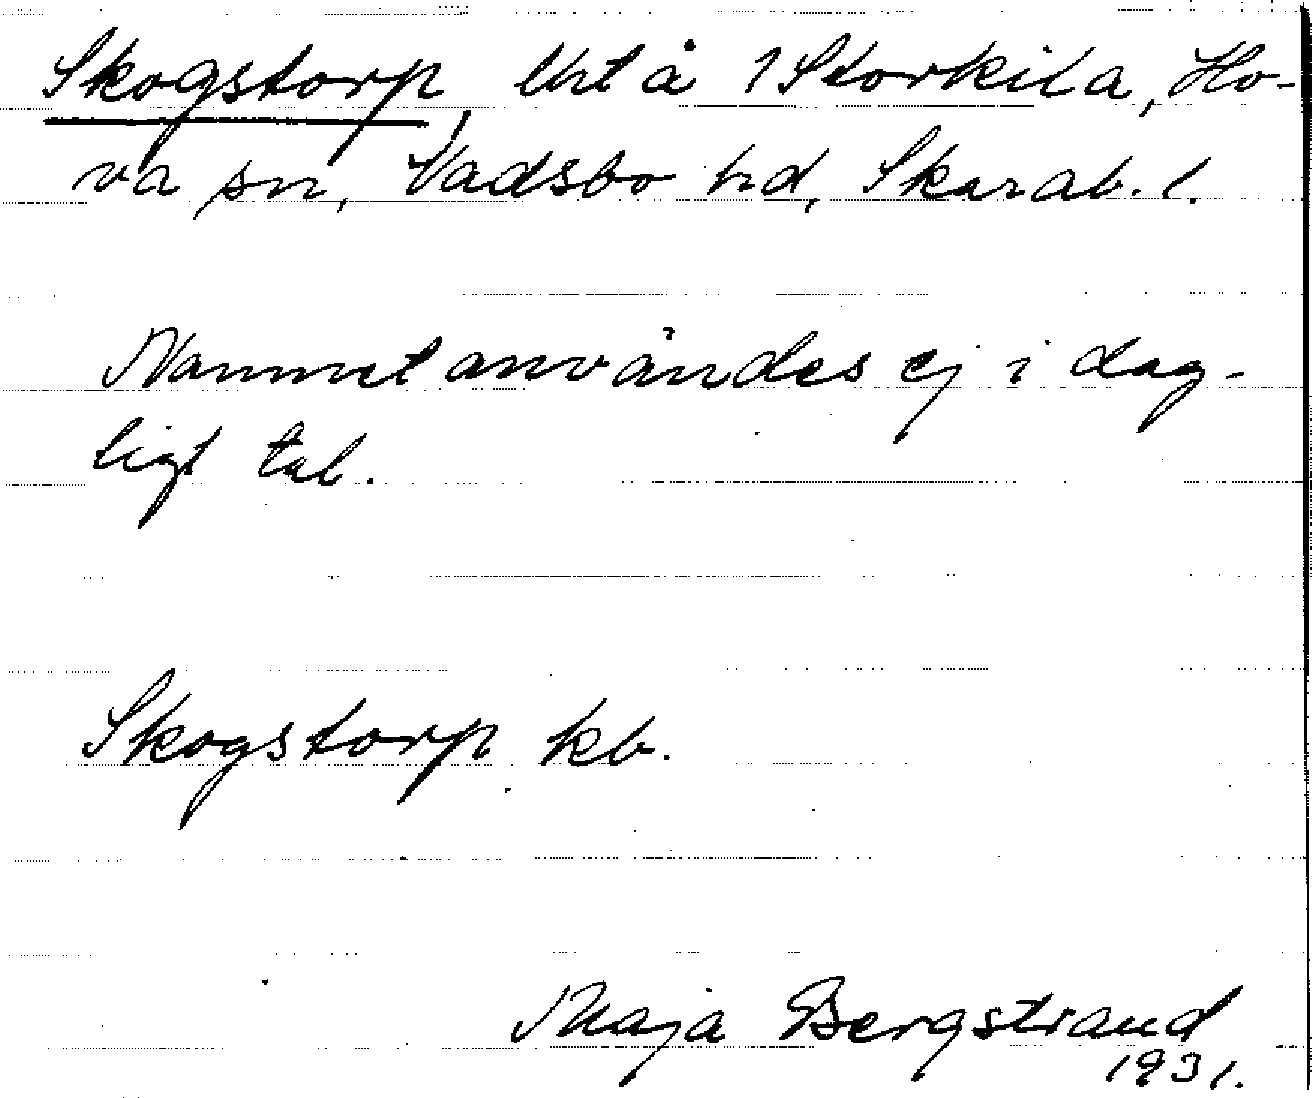 Skogstorp, lht å 1 Storkila, Ho-
va sn, Vadsbo hd, Skarab. l.
Namnet användes ej i dag-
ligt tal.
Skogstorp kb.
Maja Bergstrand
1931.